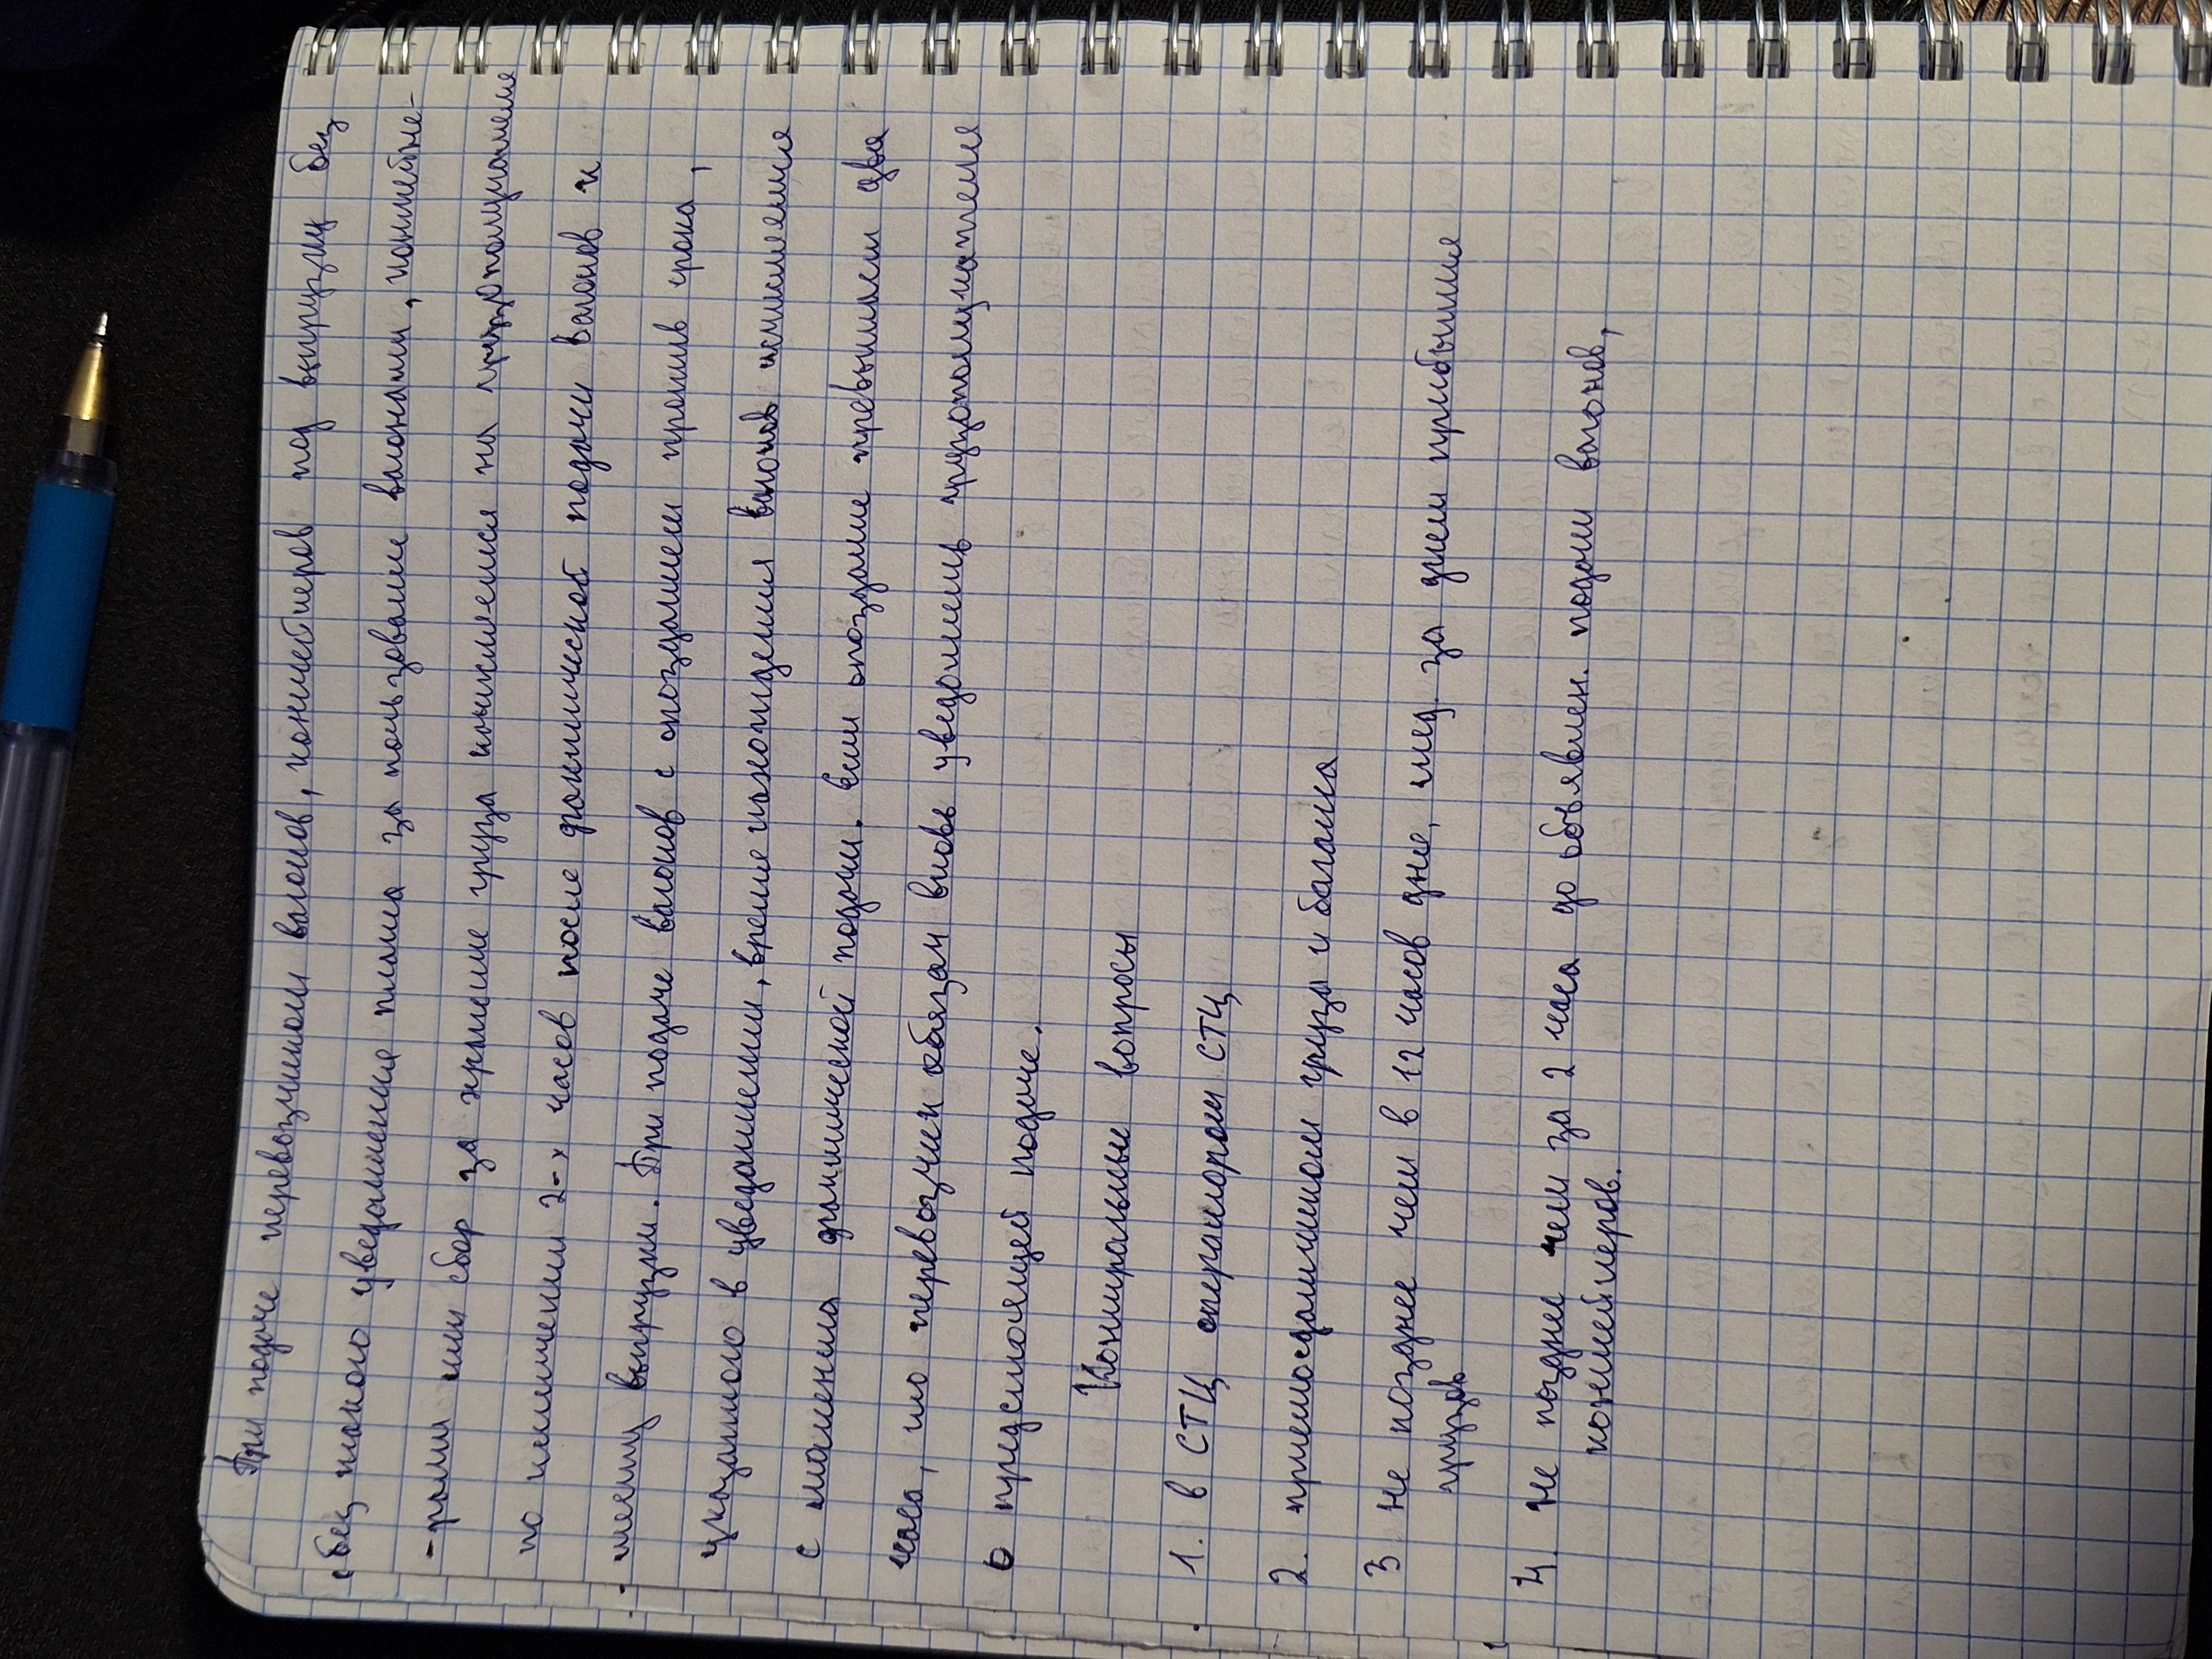 При подаче перевозчиком вагонов, контейнеров под выгрузку без
без такого уведомления плата за пользование вагонами, контейне-
-рами или сбор за хранение груза начисляется на грузополучателя
по истечении 2-х часов после фактической подачи вагонов к
месту выгрузки. При подаче вагонов с опозданием против срока,
указанного в уведомлении, время нахождения вагонов исчисляется
с момента фактической подачи. Если опоздание превышает два
часа, то перевозчик обязан вновь уведомить грузополучателя
о предстоящей подаче.
Контрольные вопросы
1. в СТЦ оператором СТЦ
2. приемосдатчиком груза и багажа
3 не позднее чем в 12 часов дне, след. за днем прибытия
грузов
4. не позднее чем за 2 часа до объявлен. подачи вагонов,
контейнеров.